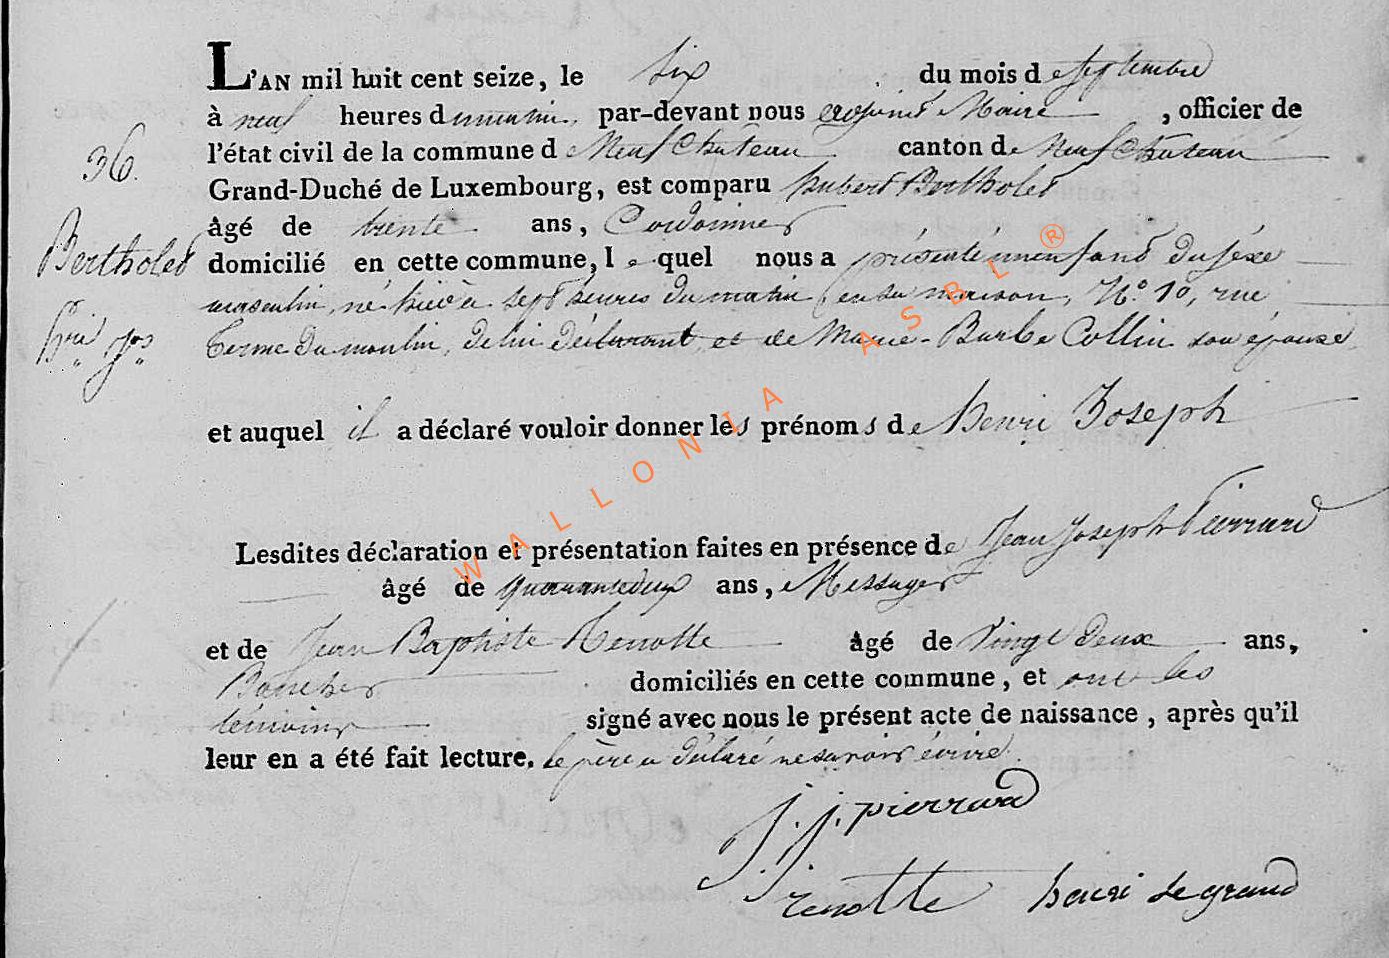 L'AN mil huit cent seize, le six du mois de septembre
à neuf heures du matin, par-devant nous adjoint Maire, officier de
36. l'état civil de la commune de Neufchateau canton de Neufchateau
Grand-Duché de Luxembourg, est comparu hubert Bertholet
âgé de trente ans, Cordonnier
Bertholet domicilié en cette commune, lequel nous a présenté un enfant du séxe
masculin, né hier à sept heures du matin en sa maison, N.º 10, rue
hri jph ferme du moulin, de lui déclarant, et de Marie-Barbe Collin son épouse,
et auquel il a déclaré vouloir donner les prénoms de henri Joseph
Lesdites déclaration et présentation faites en présence de Jean Joseph Pierrard
âgé de quarante deux ans, Messager
et de Jean Baptiste Renotte âgé de vingt deux ans,
domiciliés en cette commune, et ont les
témoins signé avec nous le présent acte de naissance, après qu'il
leur en a été fait lecture. le père a déclaré ne savoir écrire.
j. j. pierrard
j. j. renotte henri Legrand
WALLONIA ASBL ®